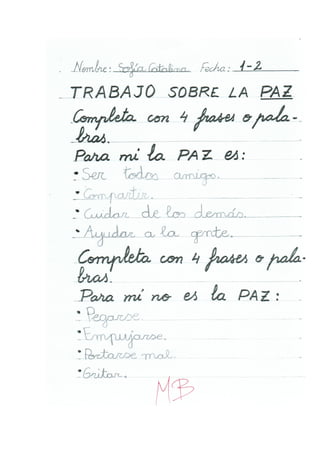 Nombre: Sofía Catalina Fecha: 1-2
TRABAJO SOBRE LA PAZ
Completa con 4 frases o pala-
bras.
Para mi la PAZ es:
• Ser todos amigo.
• Compartir.
• Cuidar de los demás.
• Ayudar a la gente.
Completa con 4 frases o pala-
bras.
Para mí no es la PAZ:
• Pegarse.
• Empujarse.
• Portarse mal.
• Gritar.
MB